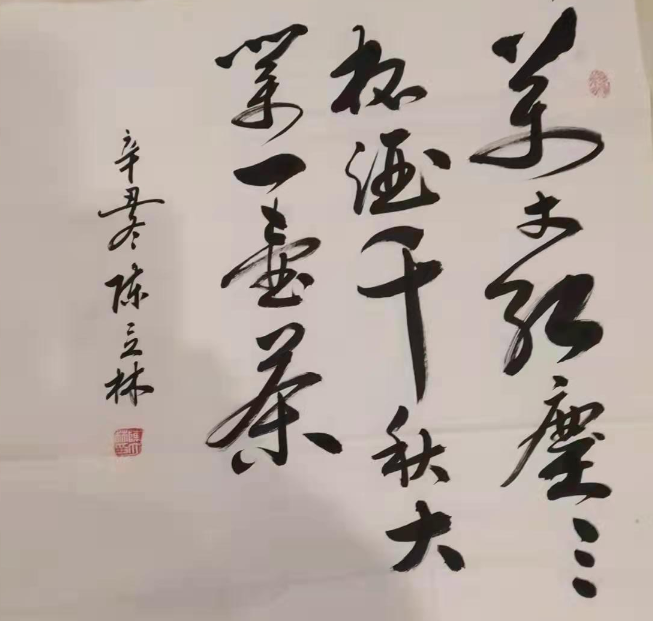 万丈红尘三
杯酒千秋大
业一壶茶
辛丑冬陈立林